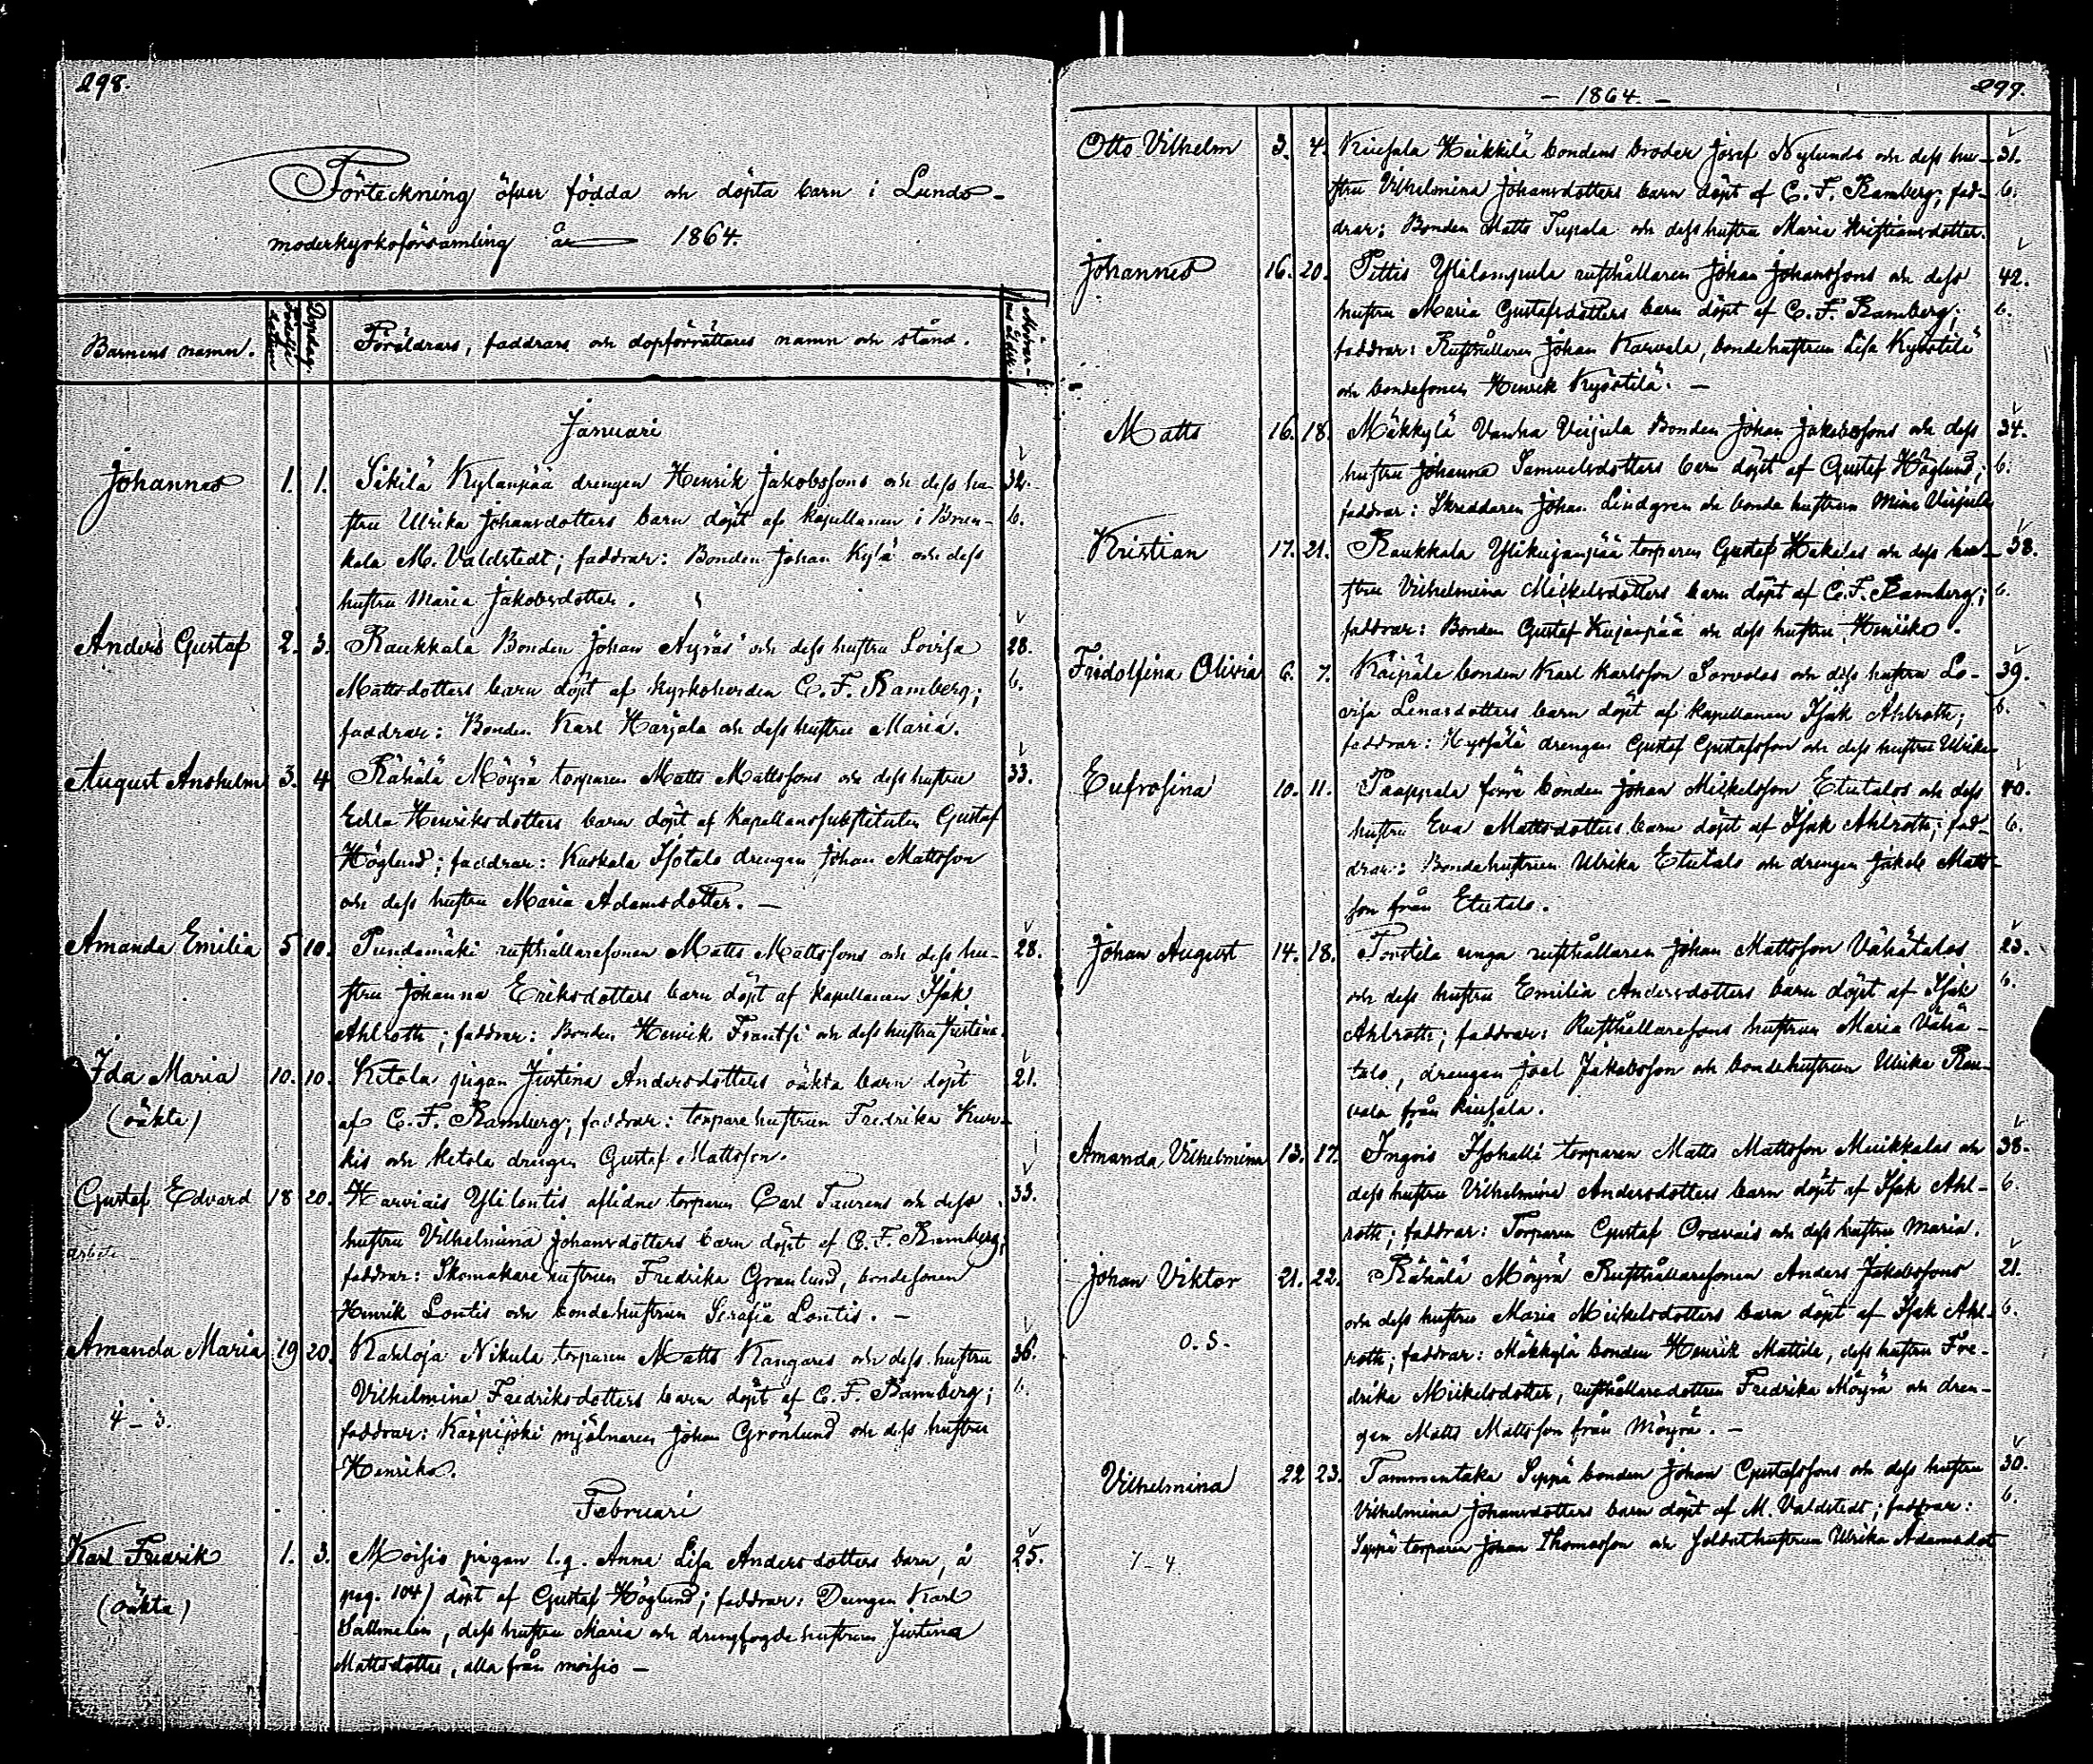 298.
Förteckning öfver födda och döpta barn i Lundo-
moderkyrkoförsamling år 1864.
Barnens namn. Födelsedatum Dopdag. Föräldrars, faddrars och dopförrättares namn och stånd.
Januari
Johannes 1. 1. Sikilä Kylänpää drengen Henrik Jakobssons och dess hu- 32.
stru Ulrika Johansdotters barn döpt af kapellanen i Brun- 6.
kala M. Valdstedt; faddrar: Bonden Johan Kylä och dess
hustru Maria Jakobsdotter.
Anders Gustaf 2. 3. Raukkala Bonden Johan Äyräs och dess hustru Lovisa 28.
Mattsdotters barn döpt af kyrkoherden C. F. Ramberg; 6.
faddrar: Bonden Karl Harjala och dess hustru Maria.
August Anshelm 3. 4 Rähälä Möyrä torparen Matts Mattssons och dess hustru 33.
Edla Henriksdotters barn döpt af kapellanssubstituten Gustaf
Höglund; faddrar: Kuskala Isotalo drengen Johan Mattsson
och dess hustru Maria Adamsdotter. —
Amanda Emilia 5 10. Pundamäki rusthållaresonen Matts Mattssons och dess hu- 28.
stru Johanna Eriksdotters barn döpt af kapellanen Isak
Ahlroth; faddrar: Bonden Henrik Frantsi och dess hustru Justina.
Ida Maria 10. 10. Ketola pigan Justina Andersdotters oäkta barn döpt 21.
(oäkta) af C. F. Ramberg; faddrar: torparehustrun Fredrika Kur-
kis och Ketola drengen Gustaf Mattsson.
Gustaf Edvard 18 20. Harviais Ylilontis aflidne torparen Carl Taurens och dess 33.
hustru Vilhelmina Johansdotters barn döpt af C. F. Ramberg;
faddrar: Skomakarehustrun Fredrika Granlund, bondesonen
Henrik Lontis och bondehustrun Serafia Lontis. —
Amanda Maria 19 20. Kahloja Nikula torparen Matts Kangares och dess hustru 36.
Vilhelmina Fredriksdotters barn döpt af C. F. Ramberg; 6.
4-3. faddrar: Kärpijoki mjölnaren Johan Grönlund och dess hustru
Henrika.
Februari
Karl Fredrik 1. 3. Moisio pigan l.q. Anna Lisa Andersdotters barn, å 25.
(oäkta) pag. 104) döpt af Gustaf Höglund; faddrar: Drengen Karl
Sallmelin, dess hustru Maria och drengfogdehustrun Justina
Mattsdotter, alla från Moisio —
299.
- 1864. -
Otto Vilhelm 3. 4. Riusala Heikkilä bondens broder Josef Nylunds och dess hu- 31.
stru Vilhelmina Johansdotters barn döpt af C. F. Ramberg; fad- 6.
drar: Bonden Matts Tupala och dess hustru Maria Kristiansdotter.
Johannes 16. 20. Pettis Ylilompula rusthållaren Johan Johanssons och dess 42.
hustru Maria Gustafsdotters barn döpt af C. F. Ramberg; 6.
faddrar: Rusthållaren Johan Karvala, bondehustrun Lisa Kyöstilä
och bondesonen Henrik Kyöstilä. —
Matts 16. 18. Mäkkylä Vanha Veijula Bonden Johan Jakobssons och dess 34.
hustru Johanna Samuelsdotters barn döpt af Gustaf Höglund; 6.
faddrar: Skreddaren Johan Lindgren och bonde hustrun Mina Veijula
Kristian 17. 21. Raukkala Ylikujanpää torparen Gustaf Hakalas och dess hu- 38.
stru Vilhelmina Mickelsdotters barn döpt af C. F. Ramberg; 6.
faddrar: Bonden Gustaf Kujanpää och dess hustru Henrika.
Fridolfina Olivia 6. 7. Käipälä bonden Karl Karlsson Sorvolas och dess hustru Lo- 39.
visa Lenasdotters barn döpt af kapellanen Isak Ahlroth; 6.
faddrar: drengen Gustaf Gustafsson och dess hustru Ulrika
Eufrosina 10. 11. Paappala förre bonden Johan Mickelsson Etutalos och dess 40.
hustru Eva Mattsdotters barn döpt af Isak Ahlroth; fad- 6.
drar: Bondehustrun Ulrika Etutalo och drengen Jakob Matts-
son från Etutalo.
Johan August 14. 18. Tortila unga rusthållaren Johan Mattsson Vähätalos 23.
och dess hustru Emilia Andersdotters barn döpt af Isak 6.
Ahlroth; faddrar: Rusthållaresons hustrun Maria Vähä-
talo, drengen Joel Jakobsson och bondehustrun Ulrika Rau-
vala från Riusala.
Amanda Vilhelmina 13. 17. Ingois Isohalli torparen Matts Mattsson Muikkalas och 38.
dess hustru Vilhelmina Andersdotters barn döpt af Isak Ahl- 6.
roth; faddrar: Torparen Gustaf Oravais och dess hustru Maria.
Johan Viktor 21. 22. Rähälä Möyrä Rusthållaresonen Anders Jakobssons 21.
och dess hustru Maria Mickelsdotters barn döpt af Isak Ahl- 6.
O.S. roth; faddrar: Mäkkylä bonden Henrik Mattila, dess hustru Fre-
drika Mickelsdotter, rusthållaredottren Fredrika Möyrä och dren-
gen Matts Mattsson från Möyrä. —
Vilhelmina 22 23. Tammentaka Seppä bonden Johan Gustafssons och dess hustru 30.
Vilhelmina Johansdotters barn döpt af M. Valdstedt; faddrar: 6.
7-4. Seppä torparen Johan Thomasson och Soldathustrun Ulrika Adamsdot